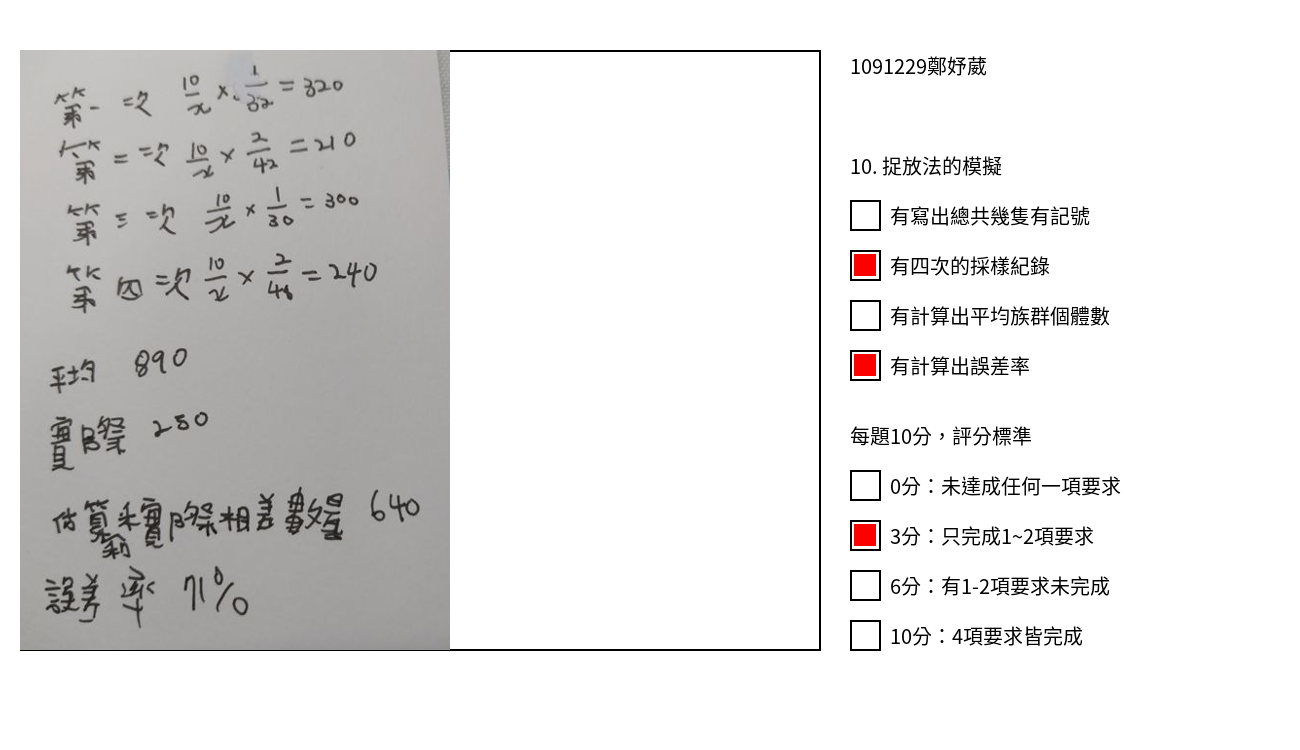 第一次 10/x × 1/32 = 320
第二次 10/x × 2/42 = 210
第三次 10/x × 1/30 = 300
第四次 10/x × 2/48 = 240
平均 890
實際 250
估算和實際相差數量 640
誤差率 71%
1091229鄭妤葳
10. 捉放法的模擬
有寫出總共幾隻有記號
有四次的採樣紀錄
有計算出平均族群個體數
有計算出誤差率
每題10分，評分標準
0分：未達成任何一項要求
3分：只完成1~2項要求
6分：有1-2項要求未完成
10分：4項要求皆完成